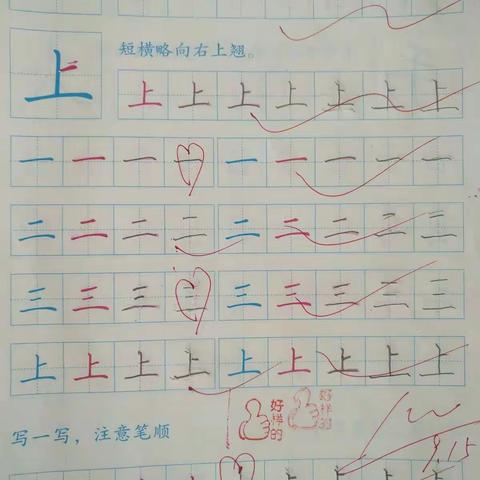 上 短横略向右上翘。
上 上 上 上 上 上 上
一 一 一 一 一 一 一 一 一
二 二 二 二 二 二 二 二 二
三 三 三 三 三 三 三 三 三
上 上 上 上 上 上 上 上 上
好样的 好样的
写一写，注意笔顺
9.15